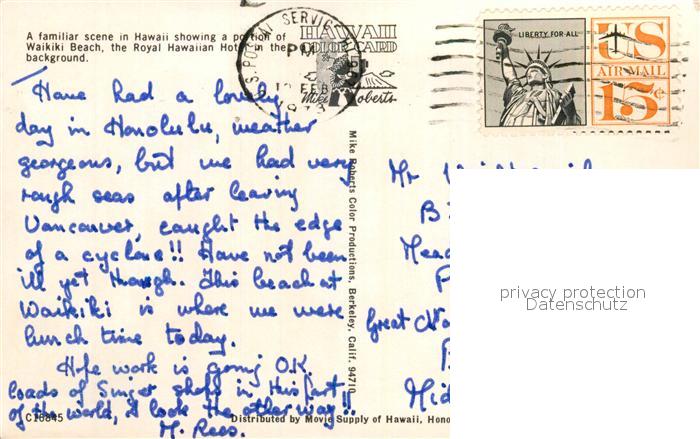 A familiar scene in Hawaii showing a portion of
Waikiki Beach, the Royal Hawaiian Hotel in the
background.
HAWAII
COLOR CARD
Mike Roberts
U.S. POSTAL SERVICE
PM
FEB
LIBERTY FOR ALL
US
AIR MAIL
15¢
Have had a lovely
day in Honolulu, weather
gorgeous, but we had very
rough seas after leaving
Vancouver, caught the edge
of a cyclone!! Have not been
ill yet though. This beach at
Waikiki is where we were
lunch time today.
Hope work is going O.K.
loads of Singer shops in this part
of the world, I look the other way!!
M. Rees.
Mike Roberts Color Productions, Berkeley, Calif. 94710
Mr
B
Mea
Great
Mid
privacy protection
Datenschutz
C18845
Distributed by Movie Supply of Hawaii, Hono